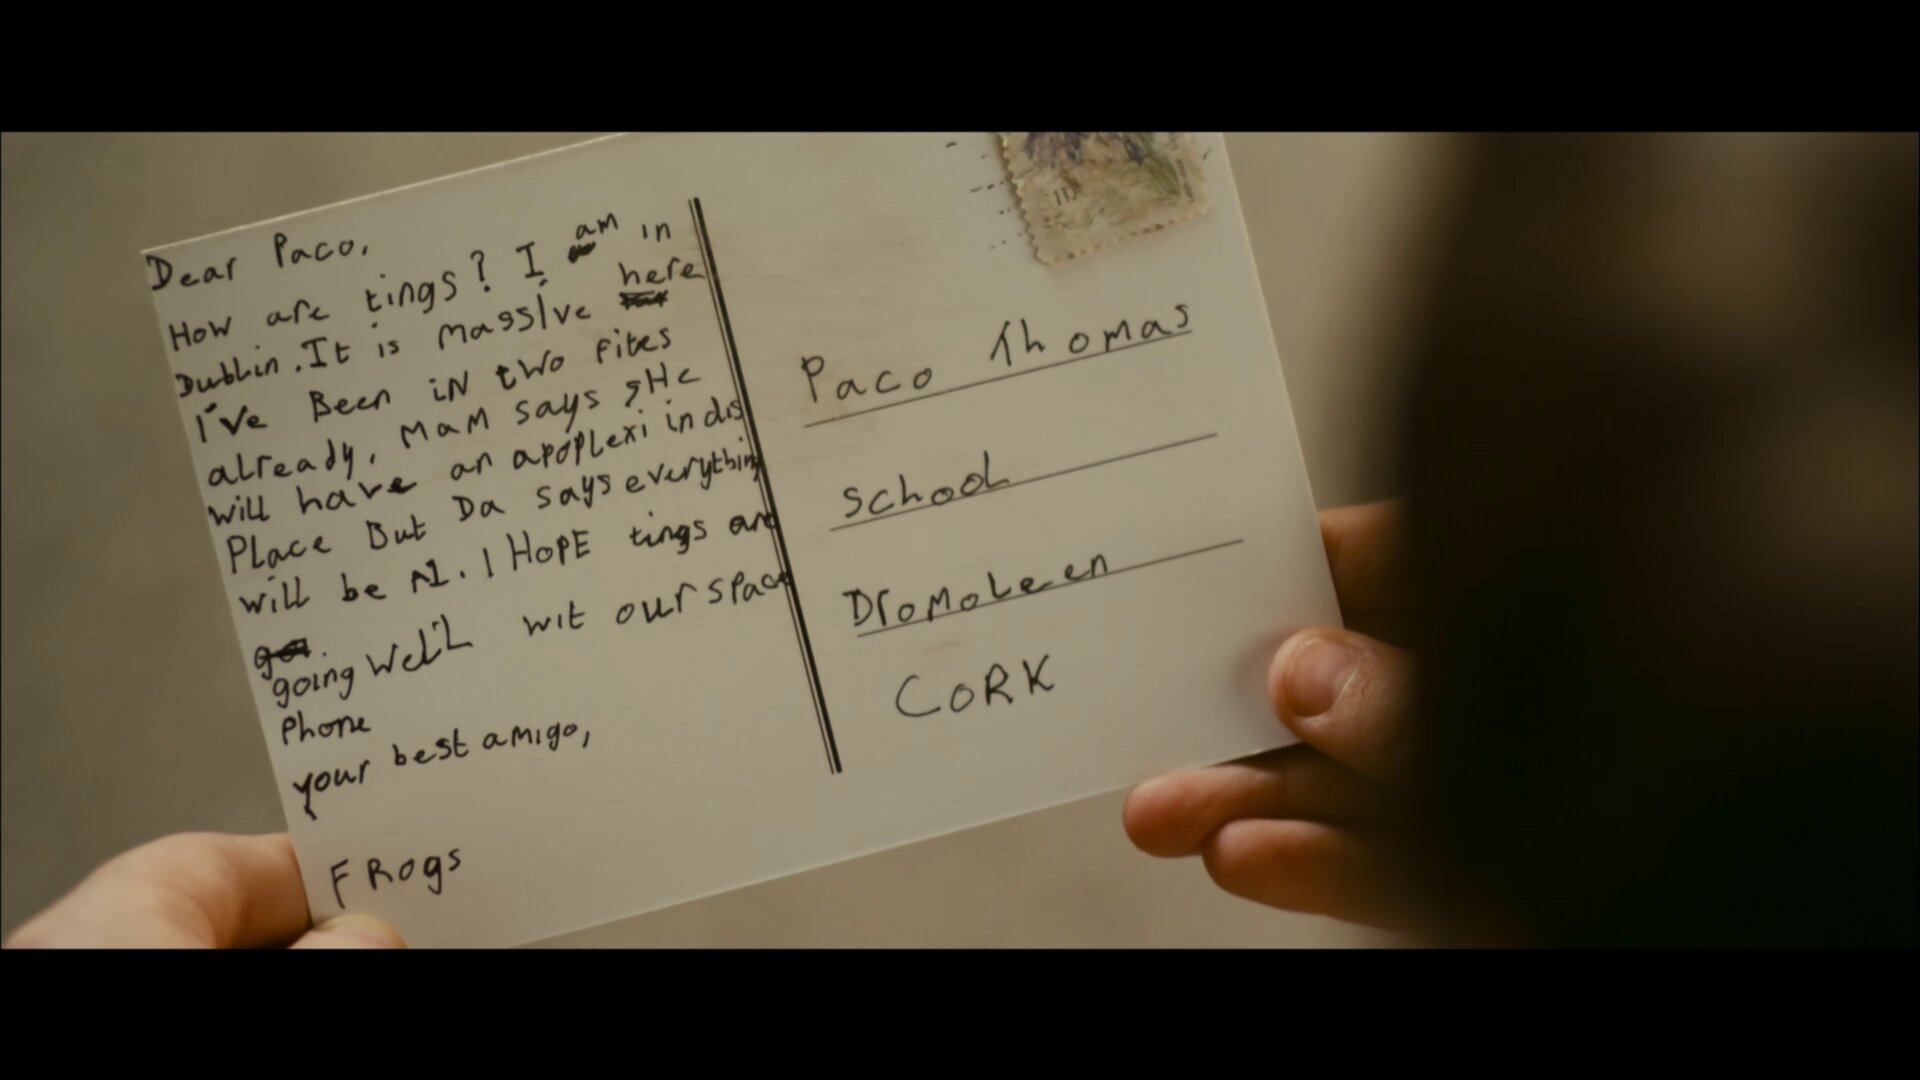 Dear Paco,
How are tings? I am in
Dublin. It is massive here
I've Been iN two fites
already. MaM says sHe
will have an apoplexi in dis
Place But Da says everything
will be A1. I HopE tings are
going Well wit our space
Phone
your best amigo,
FRogs
Paco Thomas
School
Dromoleen
CORK